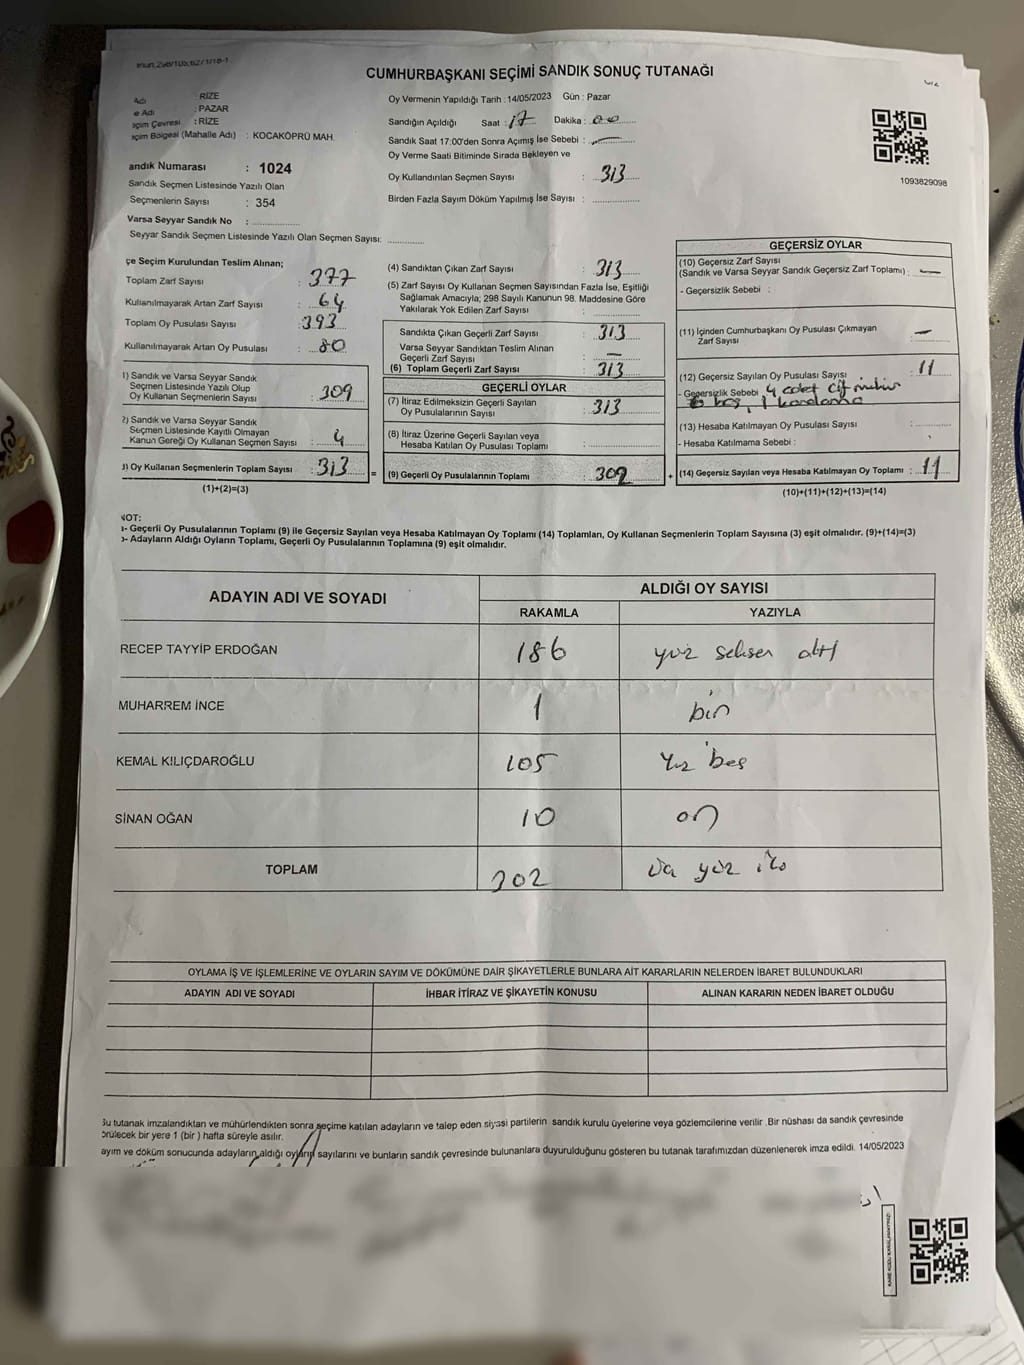 CUMHURBAŞKANI SEÇİMİ SANDIK SONUÇ TUTANAĞI
Adı : RİZE
e Adı : PAZAR
eçim Çevresi : RİZE
eçim Bölgesi (Mahalle Adı) : KOCAKÖPRÜ MAH.
andık Numarası : 1024
Sandık Seçmen Listesinde Yazılı Olan
Seçmenlerin Sayısı : 354
Varsa Seyyar Sandık No :
Seyyar Sandık Seçmen Listesinde Yazılı Olan Seçmen Sayısı:
Oy Vermenin Yapıldığı Tarih : 14/05/2023 Gün : Pazar
Sandığın Açıldığı Saat : 17 Dakika : 00
Sandık Saat 17:00'den Sonra Açımış İse Sebebi : —
Oy Verme Saati Bitiminde Sırada Bekleyen ve
Oy Kullandırılan Seçmen Sayısı : 313
Birden Fazla Sayım Döküm Yapılmış İse Sayısı :
1093829098
çe Seçim Kurulundan Teslim Alınan;
Toplam Zarf Sayısı : 377
Kullanılmayarak Artan Zarf Sayısı : 64
Toplam Oy Pusulası Sayısı : 393
Kullanılmayarak Artan Oy Pusulası : 80
1) Sandık ve Varsa Seyyar Sandık
Seçmen Listesinde Yazılı Olup
Oy Kullanan Seçmenlerin Sayısı : 309
2) Sandık ve Varsa Seyyar Sandık
Seçmen Listesinde Kayıtlı Olmayan
Kanun Gereği Oy Kullanan Seçmen Sayısı : 4
3) Oy Kullanan Seçmenlerin Toplam Sayısı : 313 =
(1)+(2)=(3)
(4) Sandıktan Çıkan Zarf Sayısı : 313
(5) Zarf Sayısı Oy Kullanan Seçmen Sayısından Fazla İse, Eşitliği
Sağlamak Amacıyla; 298 Sayılı Kanunun 98. Maddesine Göre
Yakılarak Yok Edilen Zarf Sayısı :
Sandıkta Çıkan Geçerli Zarf Sayısı : 313
Varsa Seyyar Sandıktan Teslim Alınan
Geçerli Zarf Sayısı : —
(6) Toplam Geçerli Zarf Sayısı : 313
GEÇERLİ OYLAR
(7) İtiraz Edilmeksizin Geçerli Sayılan
Oy Pusulalarının Sayısı : 313
(8) İtiraz Üzerine Geçerli Sayılan veya
Hesaba Katılan Oy Pusulaları Toplamı :
(9) Geçerli Oy Pusulalarının Toplamı : 302 +
GEÇERSİZ OYLAR
(10) Geçersiz Zarf Sayısı
(Sandık ve Varsa Seyyar Sandık Geçersiz Zarf Toplamı) : —
- Geçersizlik Sebebi :
(11) İçinden Cumhurbaşkanı Oy Pusulası Çıkmayan
Zarf Sayısı : —
(12) Geçersiz Sayılan Oy Pusulası Sayısı : 11
- Geçersizlik Sebebi 4 adet çift mühür
6 boş, 1 karalama
(13) Hesaba Katılmayan Oy Pusulası Sayısı :
- Hesaba Katılmama Sebebi :
(14) Geçersiz Sayılan veya Hesaba Katılmayan Oy Toplamı : 11
(10)+(11)+(12)+(13)=(14)
NOT:
- Geçerli Oy Pusulalarının Toplamı (9) ile Geçersiz Sayılan veya Hesaba Katılmayan Oy Toplamı (14) Toplamları, Oy Kullanan Seçmenlerin Toplam Sayısına (3) eşit olmalıdır. (9)+(14)=(3)
- Adayların Aldığı Oyların Toplamı, Geçerli Oy Pusulalarının Toplamına (9) eşit olmalıdır.
ADAYIN ADI VE SOYADI ALDIĞI OY SAYISI
RAKAMLA YAZIYLA
RECEP TAYYİP ERDOĞAN 186 yüz seksen altı
MUHARREM İNCE 1 bir
KEMAL KILIÇDAROĞLU 105 Yüz beş
SİNAN OĞAN 10 on
TOPLAM 302 Üç yüz iki
OYLAMA İŞ VE İŞLEMLERİNE VE OYLARIN SAYIM VE DÖKÜMÜNE DAİR ŞİKAYETLERLE BUNLARA AİT KARARLARIN NELERDEN İBARET BULUNDUKLARI
ADAYIN ADI VE SOYADI İHBAR İTİRAZ VE ŞİKAYETİN KONUSU ALINAN KARARIN NEDEN İBARET OLDUĞU
Bu tutanak imzalandıktan ve mühürlendikten sonra seçime katılan adayların ve talep eden siyasi partilerin sandık kurulu üyelerine veya gözlemcilerine verilir. Bir nüshası da sandık çevresinde
örülecek bir yere 1 (bir ) hafta süreyle asılır.
ayım ve döküm sonucunda adayların aldığı oyların sayılarını ve bunların sandık çevresinde bulunanlara duyurulduğunu gösteren bu tutanak tarafımızdan düzenlenerek imza edildi. 14/05/2023